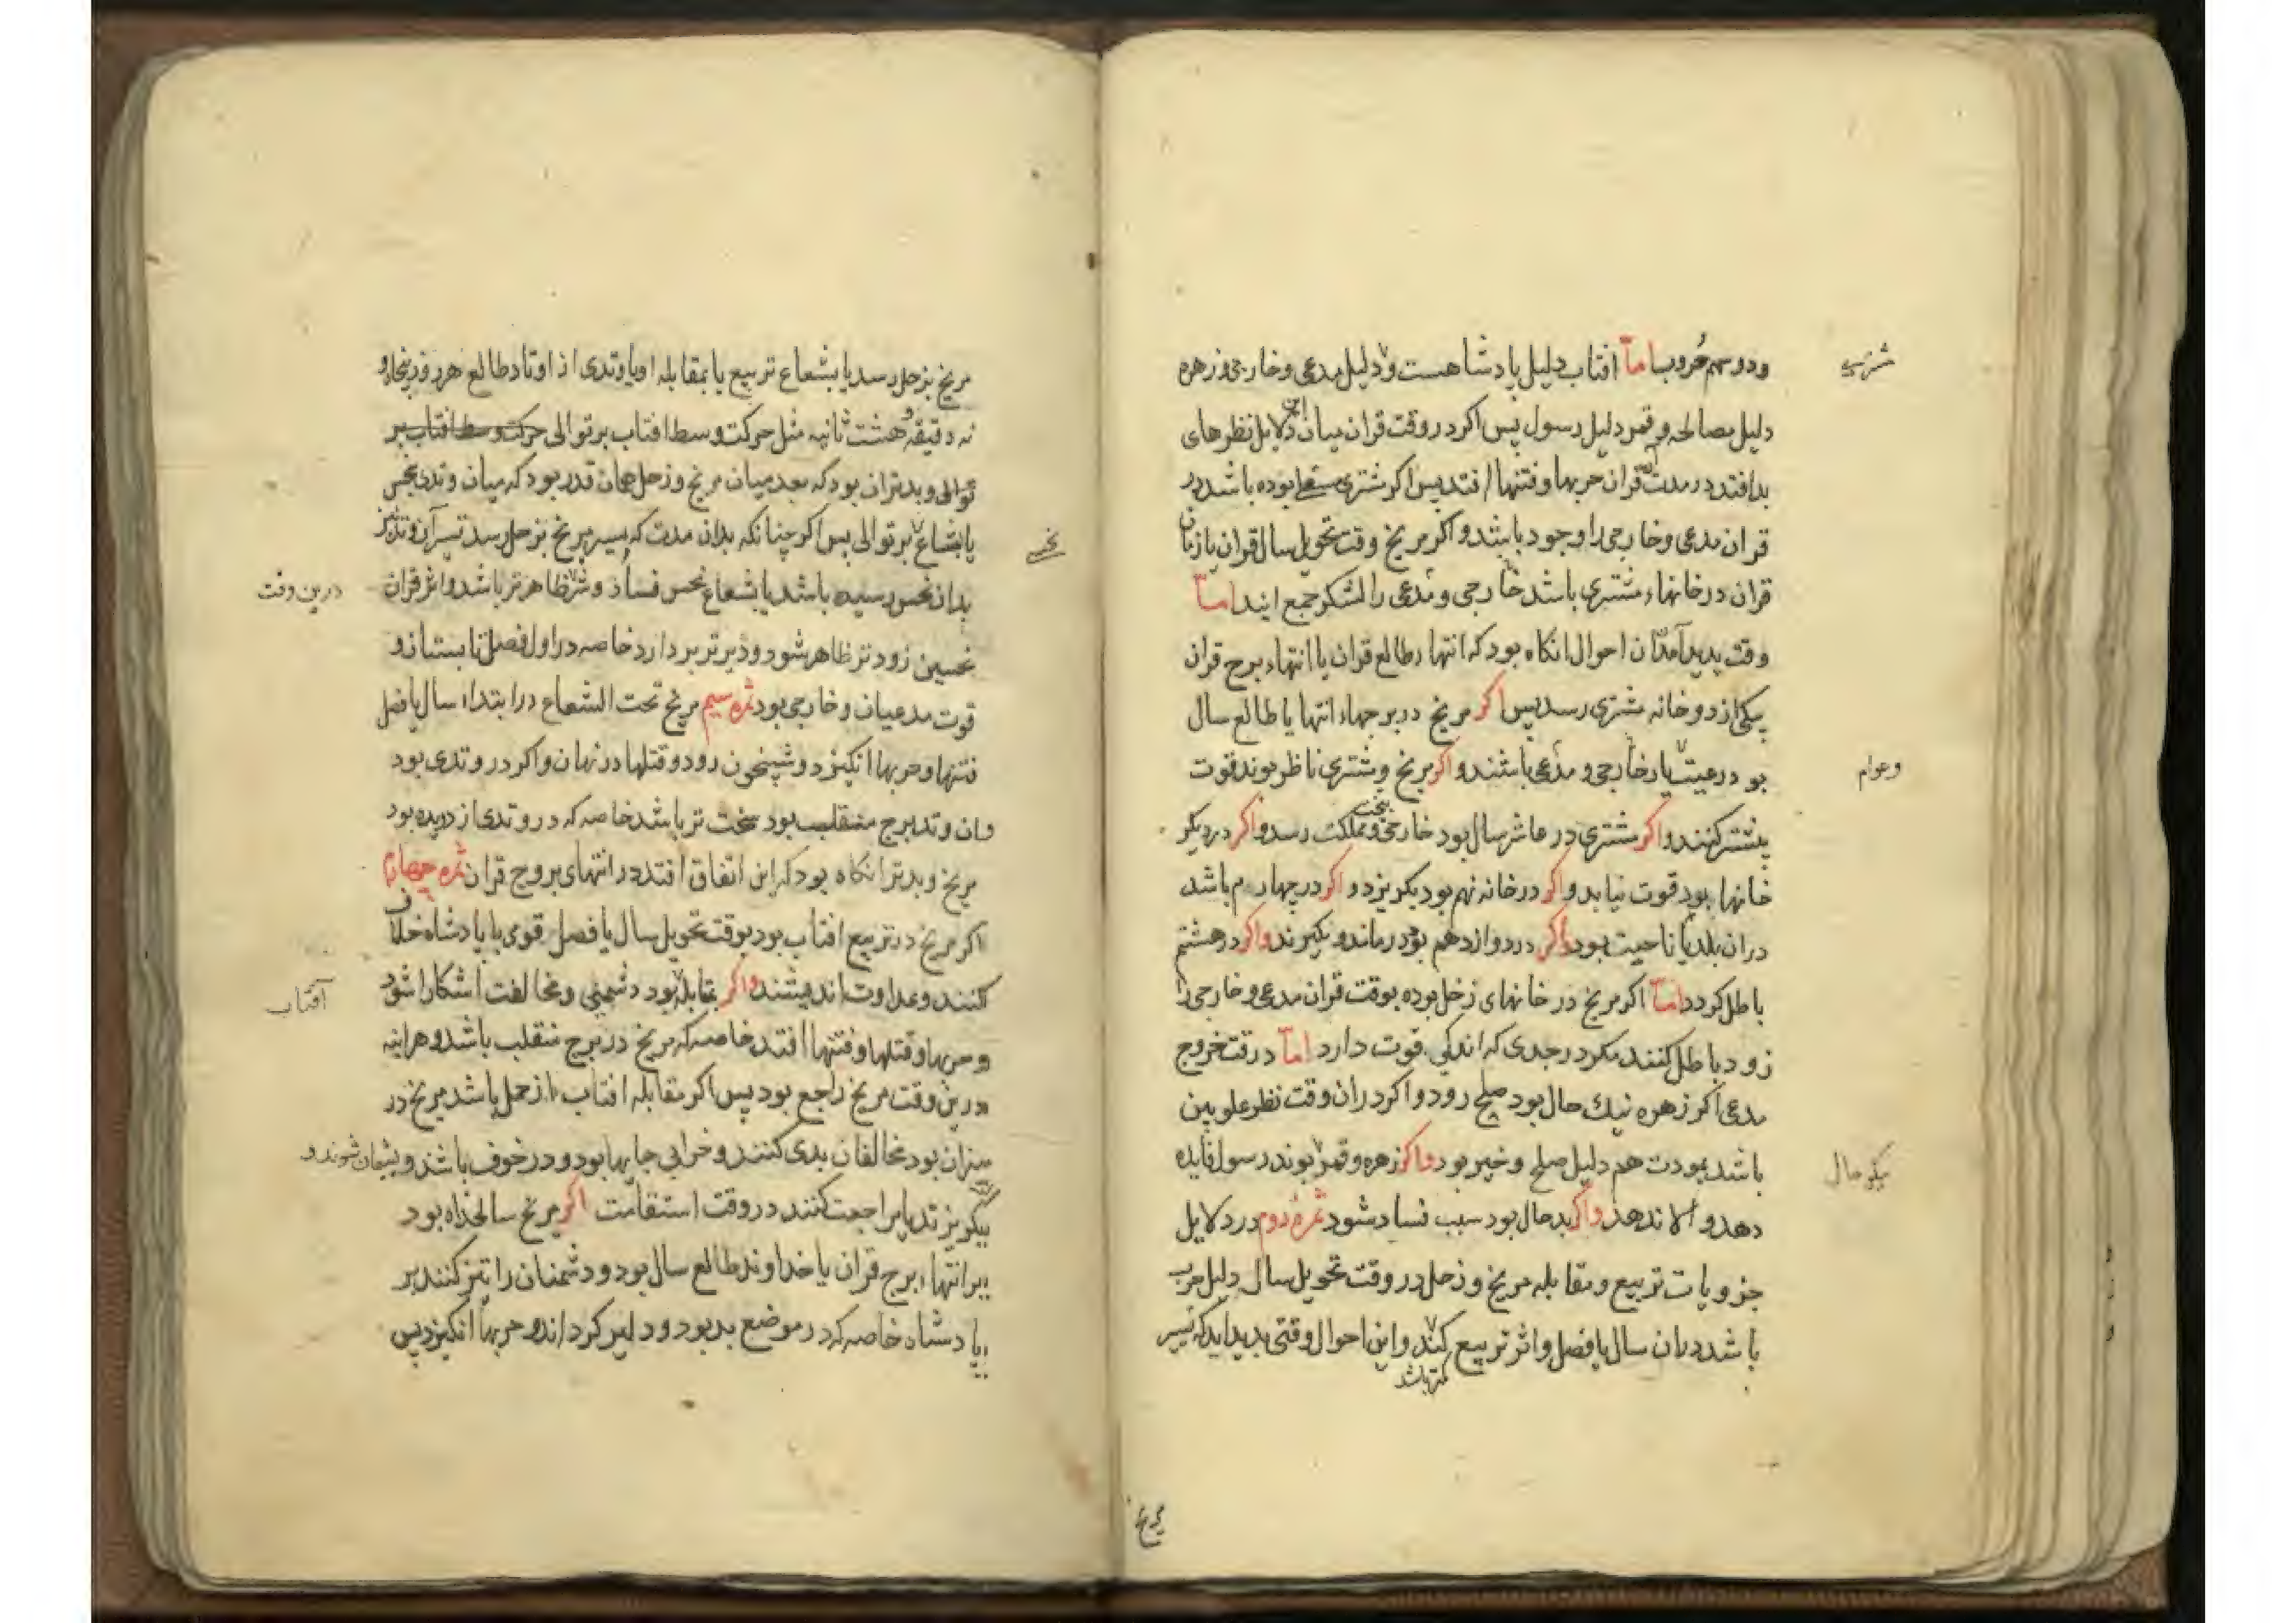 ودوسهم حروب اما افتاب دلیل پادشاهست و دلیل مدعی وخارجی وزهره
دلیل مصالحه وقمر دلیل رسول پس اکر در وقت قران میان این دلایل نظرهای
بد افتد در مدت قران حربها وفتنها افتد پس اکر مشتری بوده باشد در
قران مدعی وخارجی را وجود باشد واکر مریخ وقت تحویل سال قران یا زمان
قران در خانهاء مشتری باشد خارجی ومدعی را لشکر جمع ایند اما
وقت پدید آمدن ان احوال انکاه بود که انتهاء طالع قران یا انتهاء برج قران
بیکی از دو خانه مشتری رسد پس اکر مریخ در برجهاء انتها یا طالع سال
بود رعیت یار خارجی و مدعی باشند واکر مریخ ومشتری ناظر بوند قوت
وعوام
بیشتر کنند واکر مشتری در عاشر سال بود خارجی بتخت ومملکت رسد واکر در دیکر
خانها بود قوت نیابد واکر در خانه نهم بود بکریزد واکر در چهارم باشد
دران بلد یا ناحیت بود واکر در دوازدهم بود درماند وبکیرند واکر در هشتم
باطل کردد اما اکر مریخ در خانهای زحل بوده بوقت قران مدعی وخارجی را
زود باطل کنند مکر در جدی که اندکی قوت دارد اما در وقت خروج
مدعی اکر زهره نیك حال بود صلح رود واکر دران وقت نظر علویین
باشد بمودت هم دلیل صلح وخیر بود واکر زهره وقمر بوند رسول فایده
نیکو حال
دهد والا ندهد واکر بدحال بود سبب فساد شود ثمره دوم در دلایل
جزویات تربیع ومقابله مریخ وزحل در وقت تحویل سال دلیل حرب
باشد دران سال یا فصل واثر تربیع کند واین احوال وقتی پدید اید که تسیر
کمتر باشد
مریخ
مریخ بزحل رسد یا بشعاع تربیع یا بمقابله او یا وتدی از اوتاد طالع هر روز پنجاه و
نه دقیقه وهشت ثانیه مثل حرکت وسط افتاب بر توالی حرکت وسط افتاب بر
توالی وبدتر ان بود که بعد میان مریخ وزحل همان قدر بود که میان وتد نحس
یا بشعاع بر توالی پس اکر چنانکه بدان مدت که تسیر مریخ بزحل رسد تسیر آن وتد نیز
بدان نحس رسیده باشد یا بشعاع نحس فساد وشر ظاهرتر باشد واثر قران
درین وقت
نحسین زودتر ظاهر شود ودیرتر بردارد خاصه در اول فصل تابستان و
قوت مدعیان وخارجی بود ثمره سیم مریخ تحت الشعاع در ابتداء سال یا فصل
فتنها وحربها انکیزد وشبیخون رود وقتلها در نهان واکر در وتدی بود
وان وتد برج منقلب بود سخت تر باشد خاصه که در وتدی از دیده بود
مریخ وبدتر انکاه بود که این اتفاق افتد در انتهای بروج قران ثمره چهارم
اکر مریخ در تربیع افتاب بود بوقت تحویل سال یا فصل قومی با پادشاه خلاف
کنند وعداوت اندیشند واکر بمقابله بود دشمنی ومخالفت اشکارا شود
آفتاب
وحربها وقتلها وفتنها افتد خاصه که مریخ در برج منقلب باشد وهراینه
درین وقت مریخ راجع بود پس اکر مقابله افتاب از حمل باشد مریخ در
میزان بود مخالفان بدی کنند وخرابی جایها بود ودر خوف باشند وپشیمان شوند و
بکریزند یا مراجعت کنند در وقت استقامت اکر مریخ سالخداه بود
برانتهاء برج قران یا خداوند طالع سال بود ودشمنان را تیز کنند بر
پادشاه خاصه که در موضع بد بود ودلیر کرداند وحربها انکیزد پس